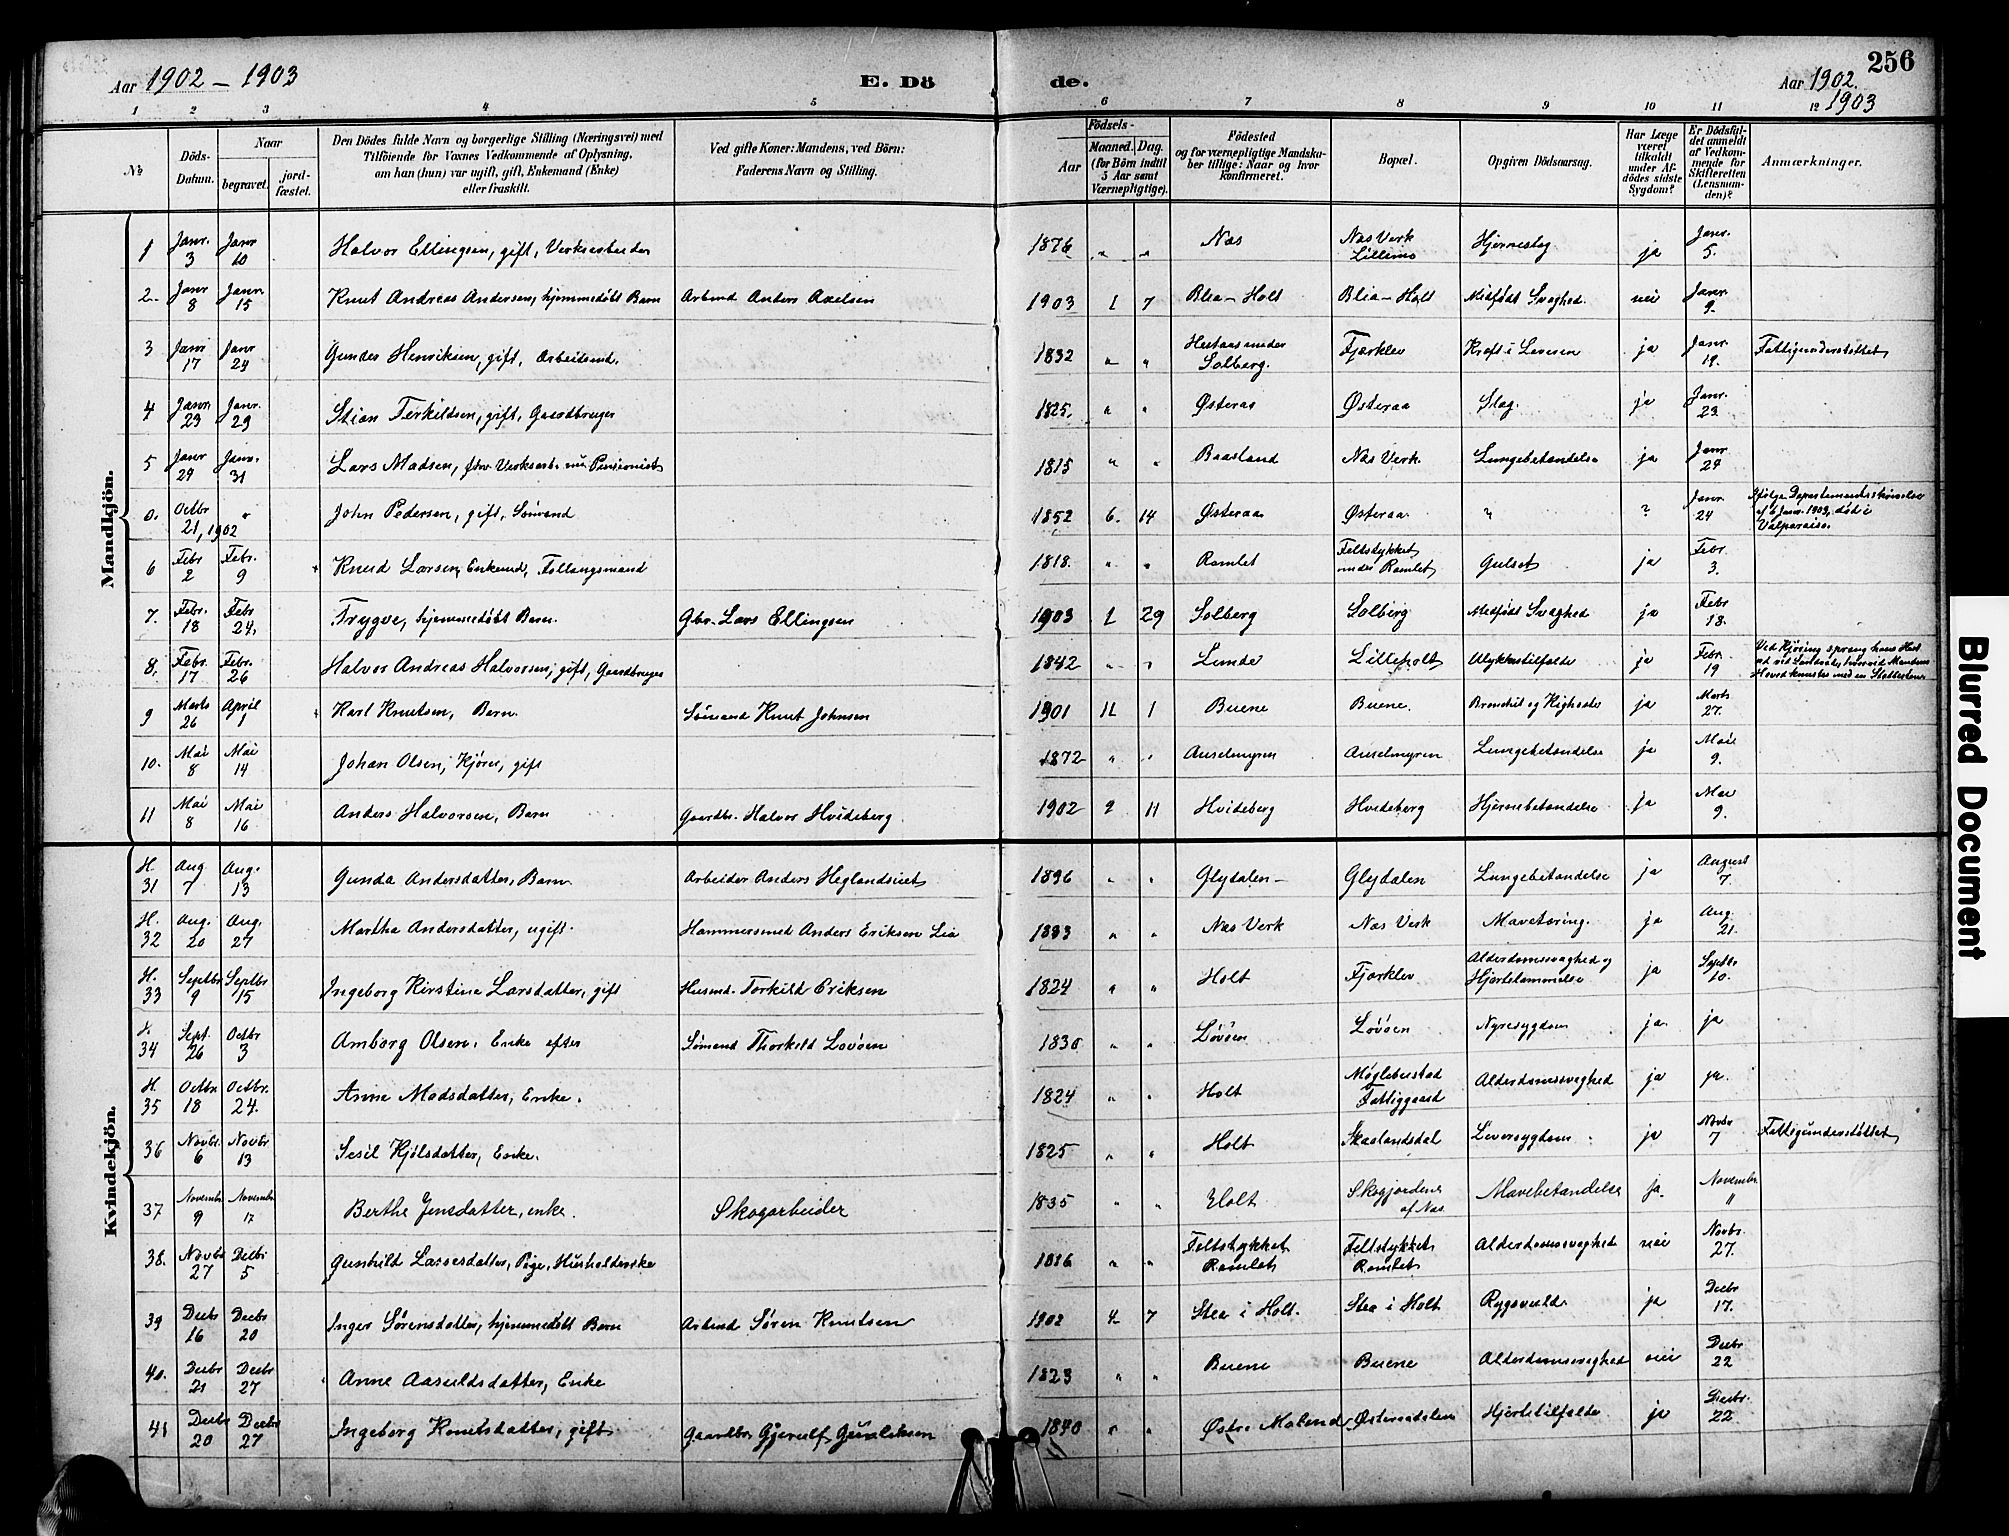 256
Aar 1902 - 1903
E. Dö
de.
Aar 1902.
1903
1 2 3 4 5 6 7 8 9 10 11 12
№
Döds-Datum.
Naar
begravet.
jord-fæstet.
Den Dödes fulde Navn og borgerlige Stilling (Næringsvei) med
Tilföiende for Voxnes Vedkommende af Oplysning,
om han (hun) var ugift, gift, Enkemand (Enke)
eller fraskilt.
Ved gifte Koner: Mandens, ved Börn:
Faderens Navn og Stilling.
Födsels-
Aar
Maaned. Dag.
(for Börn indtil
5 Aar samt
Værnepligtige).
Födested
og for værnepligtige Mandska-
ber tillige: Naar og hvor
konfirmeret.
Bopæl.
Opgiven Dödsaarsag.
Har Læge
været
tilkaldt
under Af-
dödes sidste
Sygdom?
Er Dödsfal-
det anmeldt
af Vedkom-
mende for
Skifteretten
(Lensman-
den)?
Anmærkninger.
Mandkjön.
1 Janr. 3 Janr 10 Halvor Ellingsen, gift, Verksarbeider 1876 " " Næs Næs Verk Hjerneslag ja Janr. 5.
2 Janr 8 Janr. 15 Knut Andreas Andersen, hjemmedøbt Barn Arbmd Anders Axelsen 1903 1 7 Blia - Holt Blia - Holt Medfødt Svaghed. nei Janr. 9.
3 Janr 17 Janr 24 Gunder Henriksen, gift, Arbeidsmd. 1832 " " Solberg. Fjærklev Kræft i Leveren ja Janr. 19. Fattigunderstøttet
4 Janr. 23 Janr. 29 Stian Terkildsen, gift, Gaardbruger 1825. " " Østeraa Østeraa Slag. ja Janr. 23.
5 Janr 29 Janr. 31 Lars Madsen, fhv. Verksarb. nu Pensionist 1815 " " Baasland Næs Verk. Lungebetændelse ja Janr 24
0. Octbr 21, 1902 " John Pedersen, gift, Sømand 1852 6. 14 Østeraa Østeraa ? ? Janr. 24 Ifølge Departementsskrivelse
af Janr. 1903, død i
Valparaiso.
6 Febr 2 Febr. 9 Knud Larsen, Enkemd, Follaugsmand 1818. " " Ramlet Feltstykket
under Ramlet Gulsot ja Febr 3.
7. Febr. 18 Febr 24. Trygve, hjemmedøbt Barn. Gbr. Lars Ellingsen 1903 1 29 Solberg Solberg Medfødt Svaghed ja Febr 18.
8. Febr. 17 Febr. 26 Halvor Andreas Halvorsen, gift, Gaardbruger 1842 " " Lunde Lilleholt Ulykkestilfælde ja Febr. 19 Ved Kjøring sprang hans Hest
9 Marts 26 April 1 Karl Knutsen, Barn. Sømand Knut Johnsen 1901 12 1 Buene Buene. Bronchit og Kighoste ja Marts 27.
10. Mai 8 Mai 14 Johan Olsen, Kjører, gift 1872 " " Auselmyren Auselmyren Lungebetændelse ja Mai 9.
11 Mai 8 Mai 16 Anders Halvorsen, Barn Gaardbr. Halvor Hvideberg 1902 9 11 Hvideberg Hvideberg Hjernebetændelse ja Mai 9.
Kvindekjön.
H. 31 Aug 7 Aug. 13 Gunda Andersdatter, Barn Arbeider Anders Heglandsviet 1896 " " Glydalen - Glydalen Lungebetændelse ja August 7.
H. 32 Aug. 20 Aug. 27 Martha Andersdatter, ugift. Hammersmed Anders Eriksen Lia 1883 " " Næs Verk Næs Verk Mavetæring. ja Aug. 21.
H. 33 Septbr 9 Septbr 15 Ingeborg Kirstine Larsdatter, gift Husmd. Torkild Eriksen 1824 " " Holt Fjærklev Alderdomssvaghed og
Hjertelammelse ja Septbr 10.
34 Sept. 26 Octbr 3 Amborg Olsen, Enke efter Sømand Thorkild Løvøen 1830 " " Løvøen Løvøen Nyresygdom ja ja
H. 35 Octbr. 18 Octbr. 24. Anne Madsdatter, Enke. 1824 " " Holt Møglebustad
Fattiggaard Alderdomssvaghed ja ja.
36 Novbr. 6 Novbr 13 Sesil Kjølsdatter, Enke. 1825 " " Holt Skaalandsdal Leversygdom ja Novbr 7 Fattigunderstøttet
37 Novembr 9 Novembr 17 Berthe Jensdatter, enke. Skogarbeider 1835 " " Holt Skogjordene
af Næs Mavebetændelse ja. Novembr 11
38. Novbr 27 Decbr 5 Gunhild Lassesdatter, Pige, Husholderske 1816 " " Feltstykket
Ramlet Feltstykket
Ramlet Alderdomssvaghed nei Novbr. 27.
39 Decbr 16 Decbr 20 Inger Sørensdatter, hjemmedøbt Barn Arbmd Søren Knutsen 1902 4 7 Stea i Holt. Stea i Holt ja Decbr 17.
40. Decbr 21 Decbr 27 Anne Aasuldsdatter, Enke 1823 " " Buene Buene Alderdomssvaghed nei Decbr 22
41 Decbr 20 Decbr 27 Ingeborg Knutsdatter, gift Gaardbr Gjerulf Gunleksen 1840 " " Østre Moland Østeraadalen Hjertetilfælde ja Decbr. 22
Blurred Document